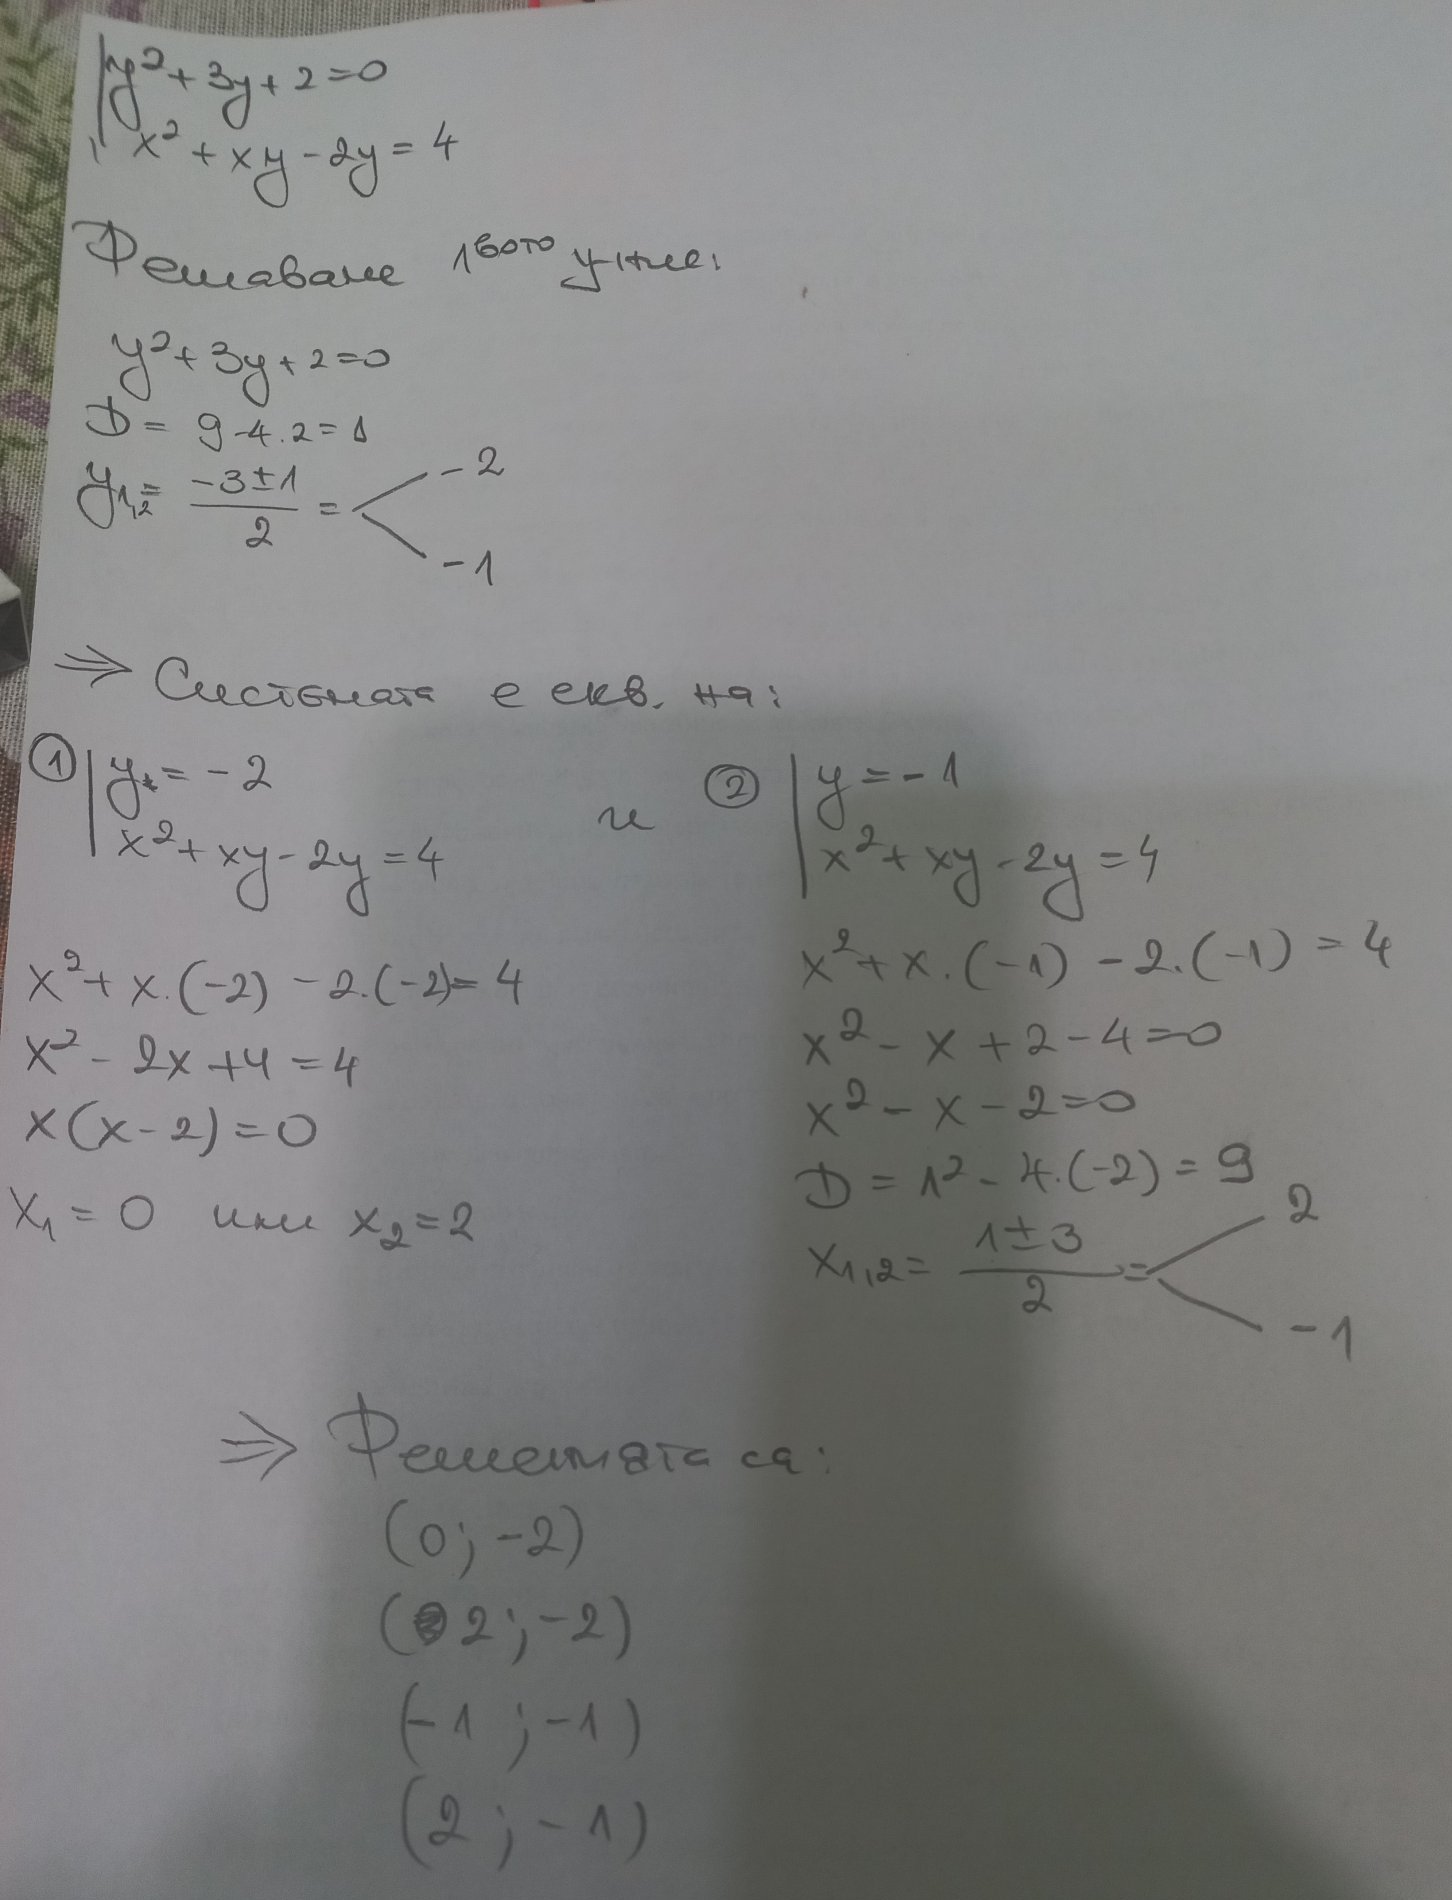 y² + 3y + 2 = 0
x² + xy - 2y = 4
Решаваме 1вото у-ние:
y² + 3y + 2 = 0
D = 9 - 4.2 = 1
y1,2 = (-3 ± 1)/2 = -2
-1
⇒ Системата е екв. на:
① y = -2
x² + xy - 2y = 4
x² + x.(-2) - 2.(-2) = 4
x² - 2x + 4 = 4
x(x - 2) = 0
x₁ = 0 или x₂ = 2
и
② y = -1
x² + xy - 2y = 4
x² + x.(-1) - 2.(-1) = 4
x² - x + 2 - 4 = 0
x² - x - 2 = 0
D = 1² - 4.(-2) = 9
x1,2 = (1 ± 3)/2 = 2
-1
⇒ Решенията са:
(0; -2)
(2; -2)
(-1; -1)
(2; -1)